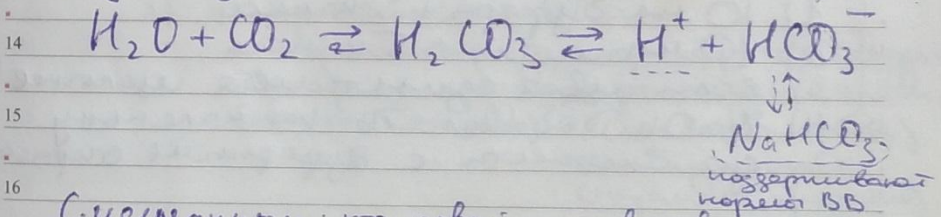 14 H₂O + CO₂ ⇄ H₂CO₃ ⇄ H⁺ + HCO₃⁻
↓↑
15
NaHCO₃
поддерживают
16
ВВ